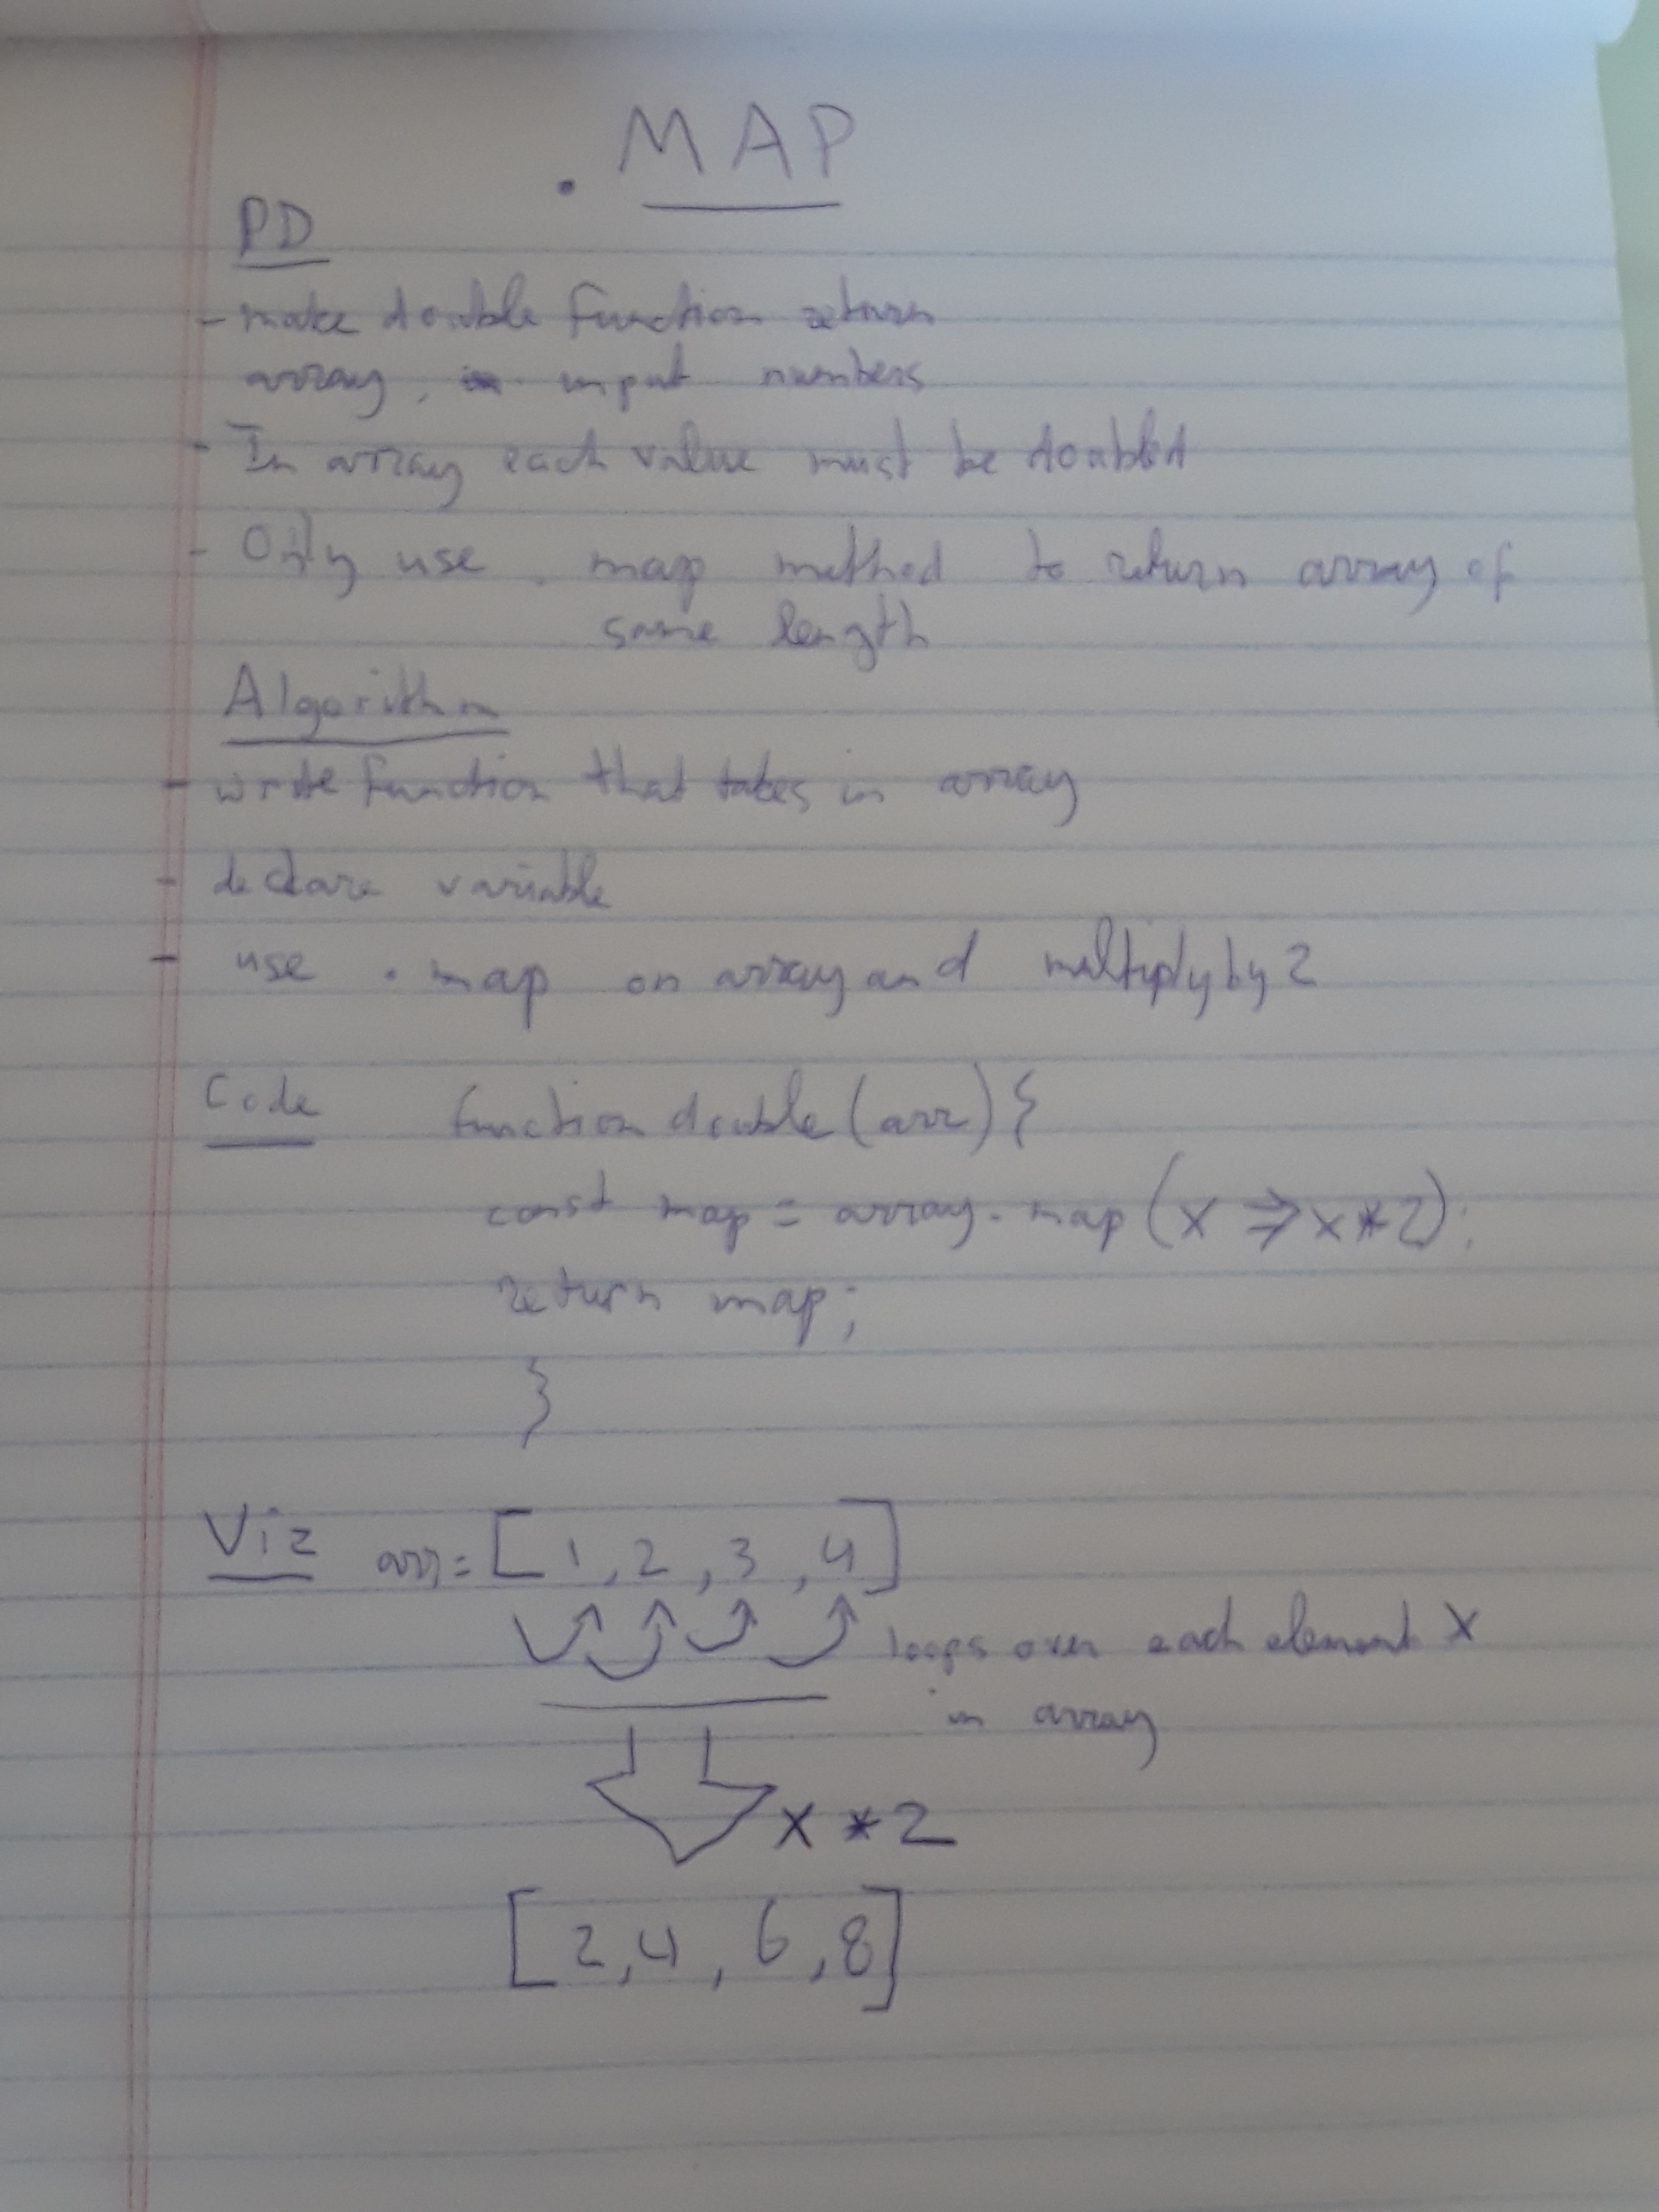 . MAP
PD
- make double function return
array, input numbers
- In array each value must be doubled
- Only use .map method to return array of
same length
Algorithm
- write function that takes in array
- declare variable
- use .map on array and multiply by 2
Code function double (arr) {
const map = array.map (x => x*2);
return map;
}
Viz arr = [1, 2, 3, 4]
loops over each element X
in array
X * 2
[2, 4, 6, 8]